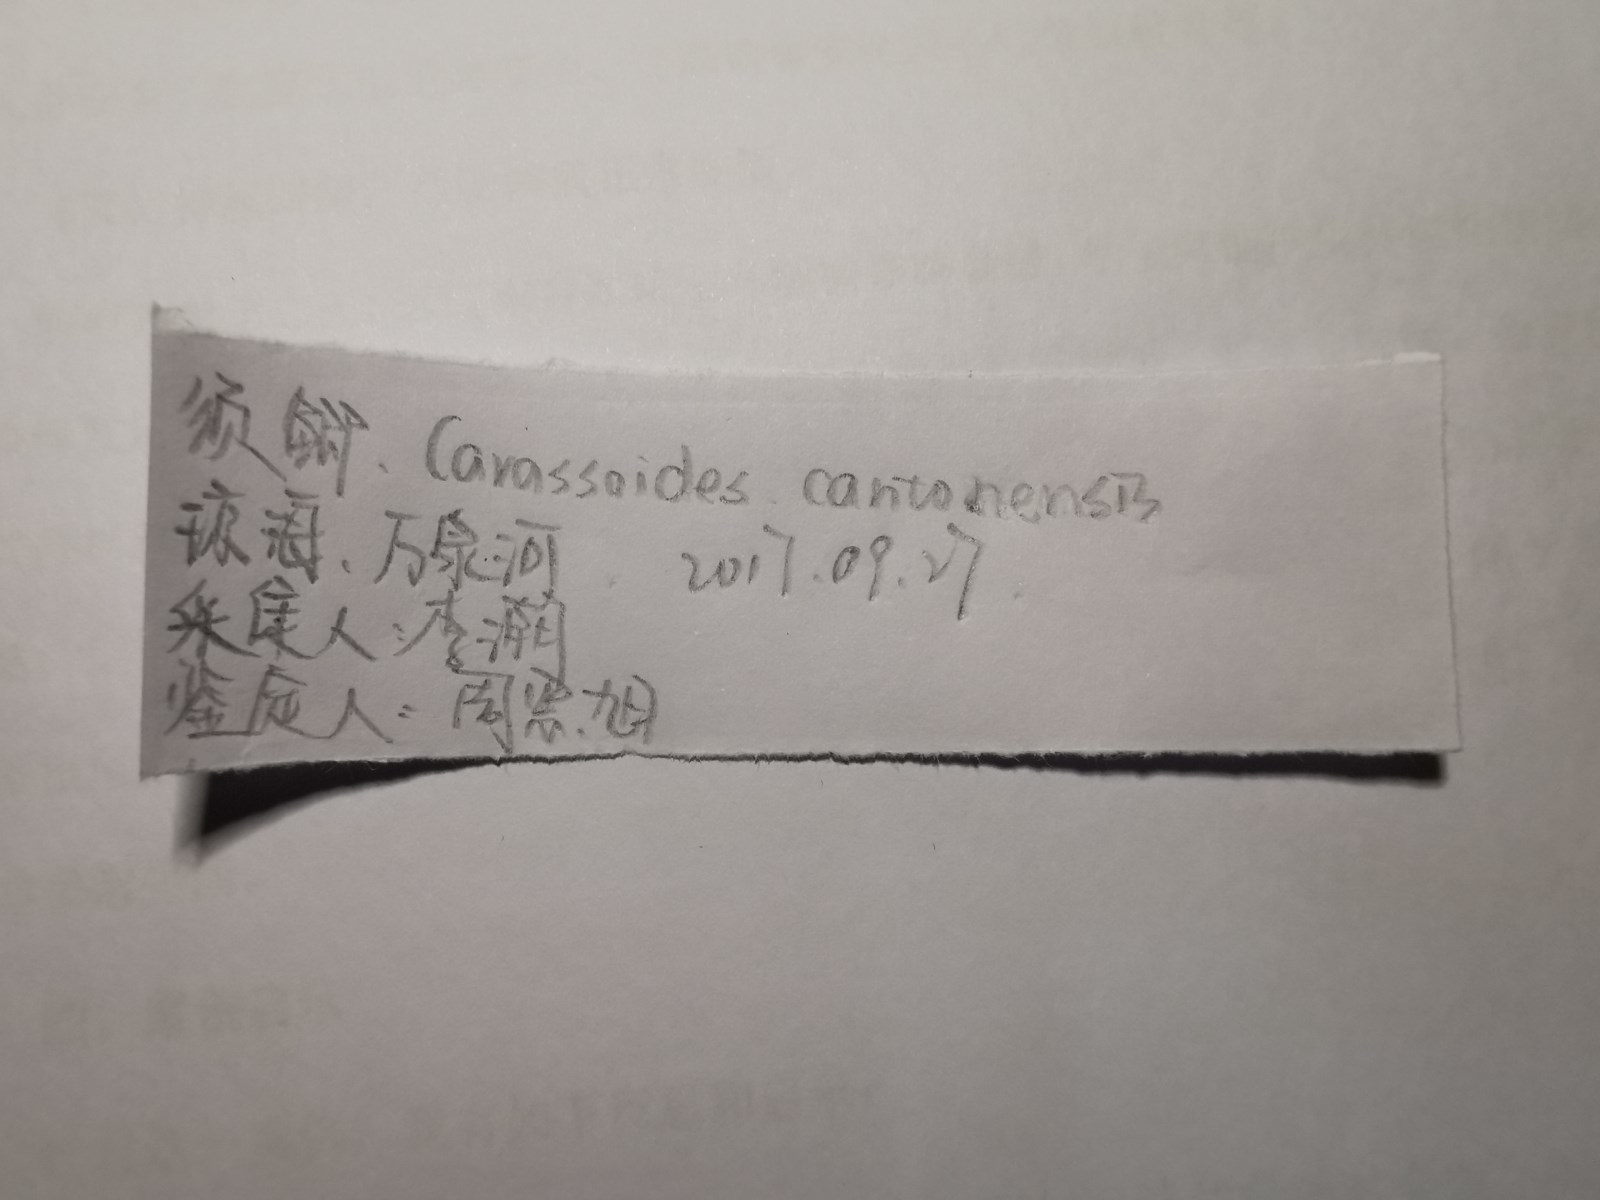 须鲫、Carassoides cantonensis
琼海、万泉河 2017.09.27.
采集人:李溯
鉴定人:周思旭